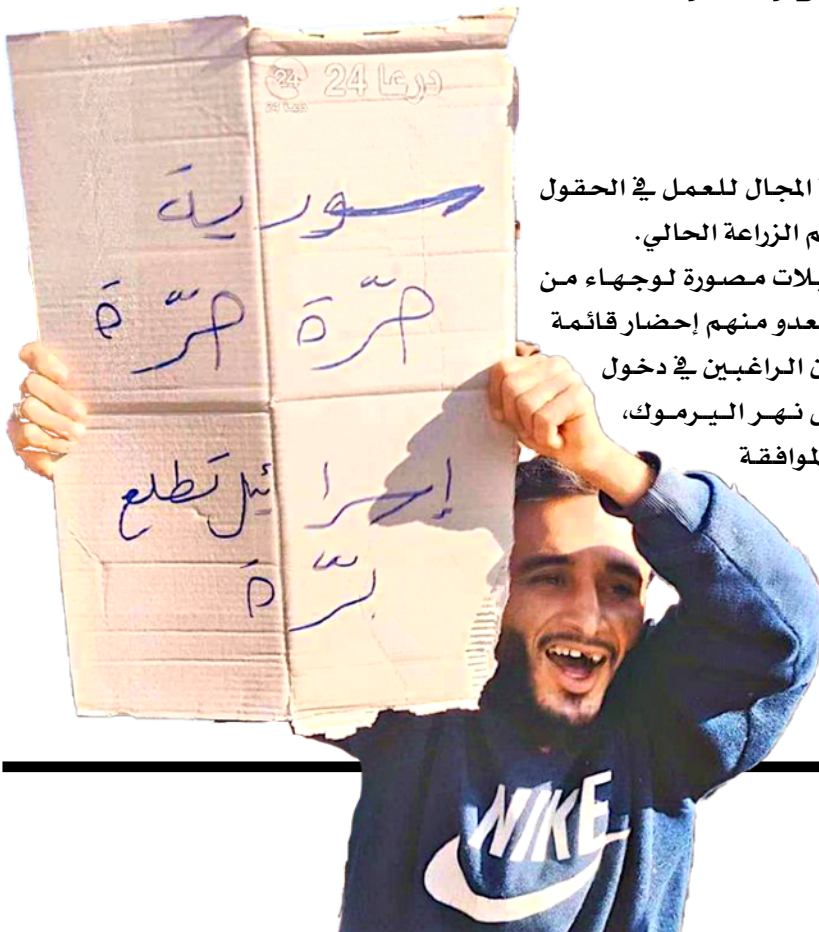 درعا 24
سورية
حرّة حرّة
إسرائيل تطلع
برّة
المجال للعمل في الحقول
الزراعة الحالي.
مصورة لوجهاء من
منهم إحضار قائمة
الراغبين في دخول
نهر اليرموك،
NIKE